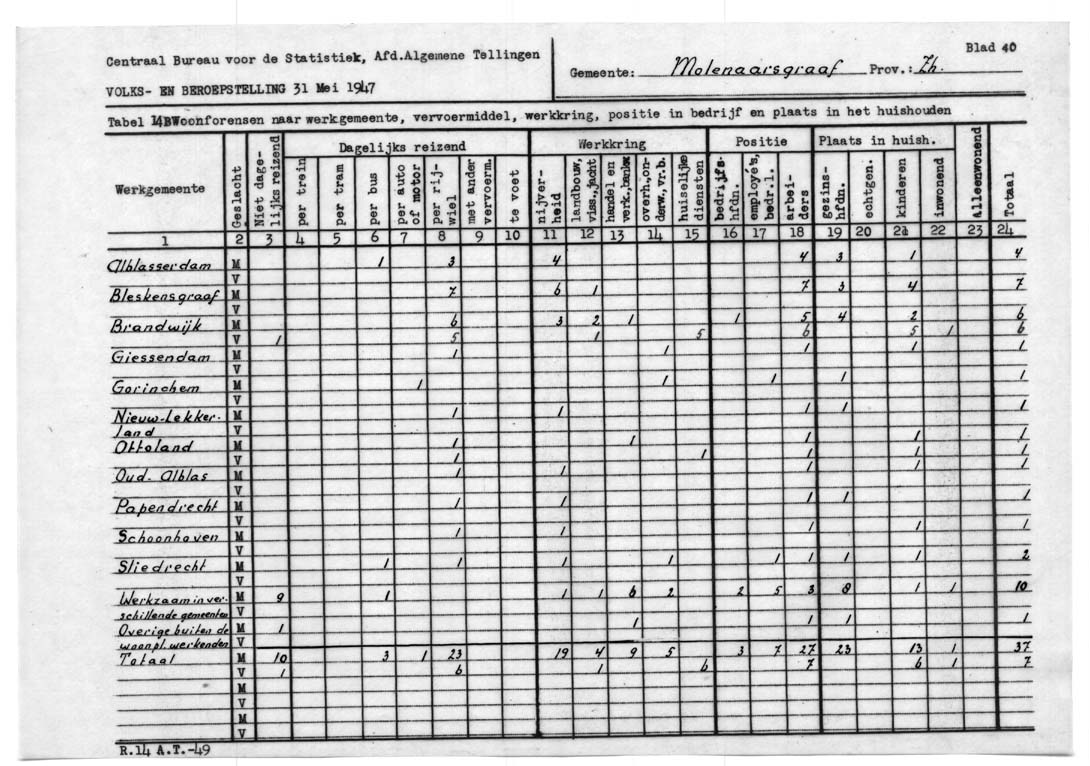 Blad 40
Centraal Bureau voor de Statistiek, Afd.Algemene Tellingen
Gemeente: Molenaarsgraaf Prov.: Zh.
VOLKS- EN BEROEPSTELLING 31 Mei 1947
Tabel 14BWoonforensen naar werkgemeente, vervoermiddel, werkkring, positie in bedrijf en plaats in het huishouden
Werkgemeente Geslacht Niet dage- lijks reizend Dagelijks reizend Werkkring Positie Plaats in huish. Alleenwonend Totaal
per trein per tram per bus per auto of motor per rij- wiel met ander vervoerm. te voet nijver- heid landbouw, viss.,jacht handel en verk.,bankw overh.on- derw.,vr.b. huiselijke diensten bedrijfs- hfdn. employé's, bedr.l. arbei- ders gezins- hfdn. echtgen. kinderen inwonend
1 2 3 4 5 6 7 8 9 10 11 12 13 14 15 16 17 18 19 20 21 22 23 24
Alblasserdam M 1 3 4 4 3 1 4
V
Bleskensgraaf M 7 6 1 7 3 4 7
V
Brandwijk M 6 3 2 1 1 5 4 2 6
V 1 5 1 5 6 5 1 6
Giessendam M 1 1 1 1 1
V
Gorinchem M 1 1 1 1 1
V
Nieuw-Lekker- M 1 1 1 1 1
land V
Ottoland M 1 1 1 1 1
V 1 1 1 1 1
Oud-Alblas M 1 1 1 1 1
V
Papendrecht M 1 1 1 1 1
V
Schoonhoven M 1 1 1 1 1
V
Sliedrecht M 1 1 1 1 1 1 1 1 2
V
Werkzaam in ver- M 9 1 1 1 6 2 2 5 3 8 1 1 10
schillende gemeenten V
Overige buiten de M 1 1 1 1 1
woonpl. werkenden V
Totaal M 10 3 1 23 19 4 9 5 3 7 27 23 13 1 37
V 1 6 1 6 7 6 1 7
M
V
M
V
R.14 A.T.-49